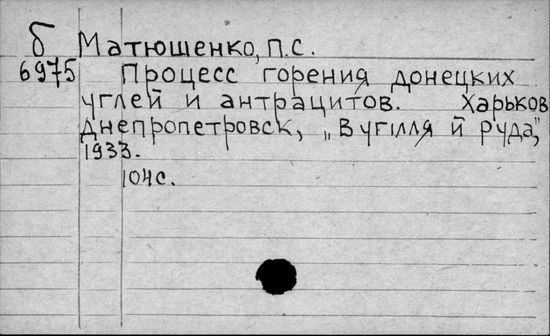 б Матюшенко, П.С.
6975 Процесс горения донецких
углей и антрацитов. Харьков
Днепропетровск, „Вугілля й руда",
1933.
104с.